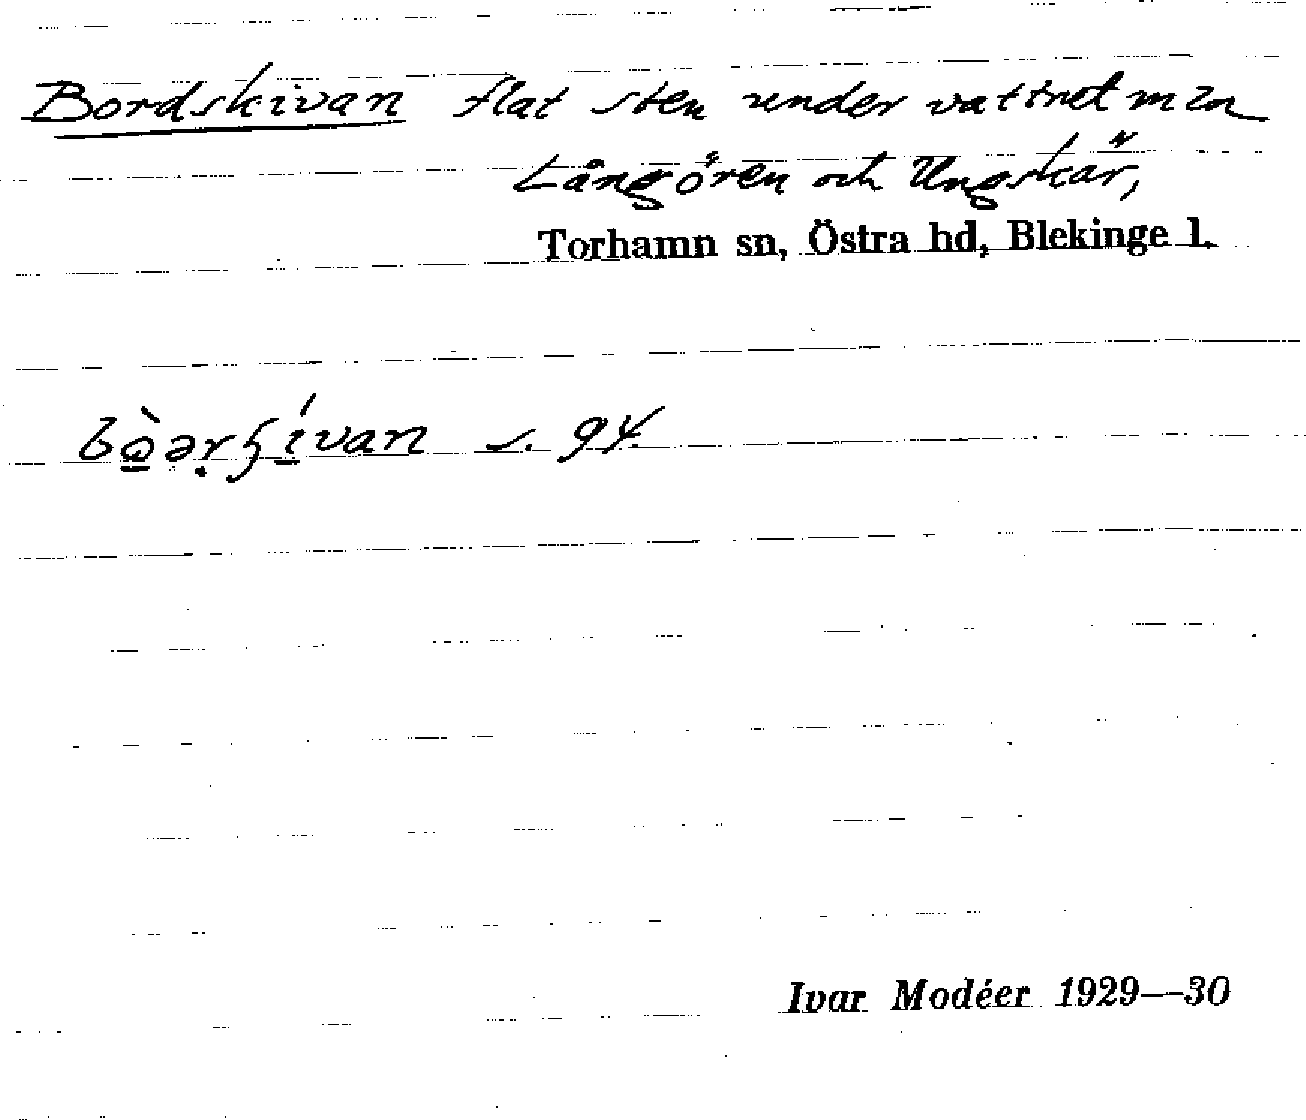 Bordskivan flat sten under vattnet mln
Långören och Ungskär,
Torhamn sn, Östra hd, Blekinge l.
s. 94.
Ivar Modéer 1929—30